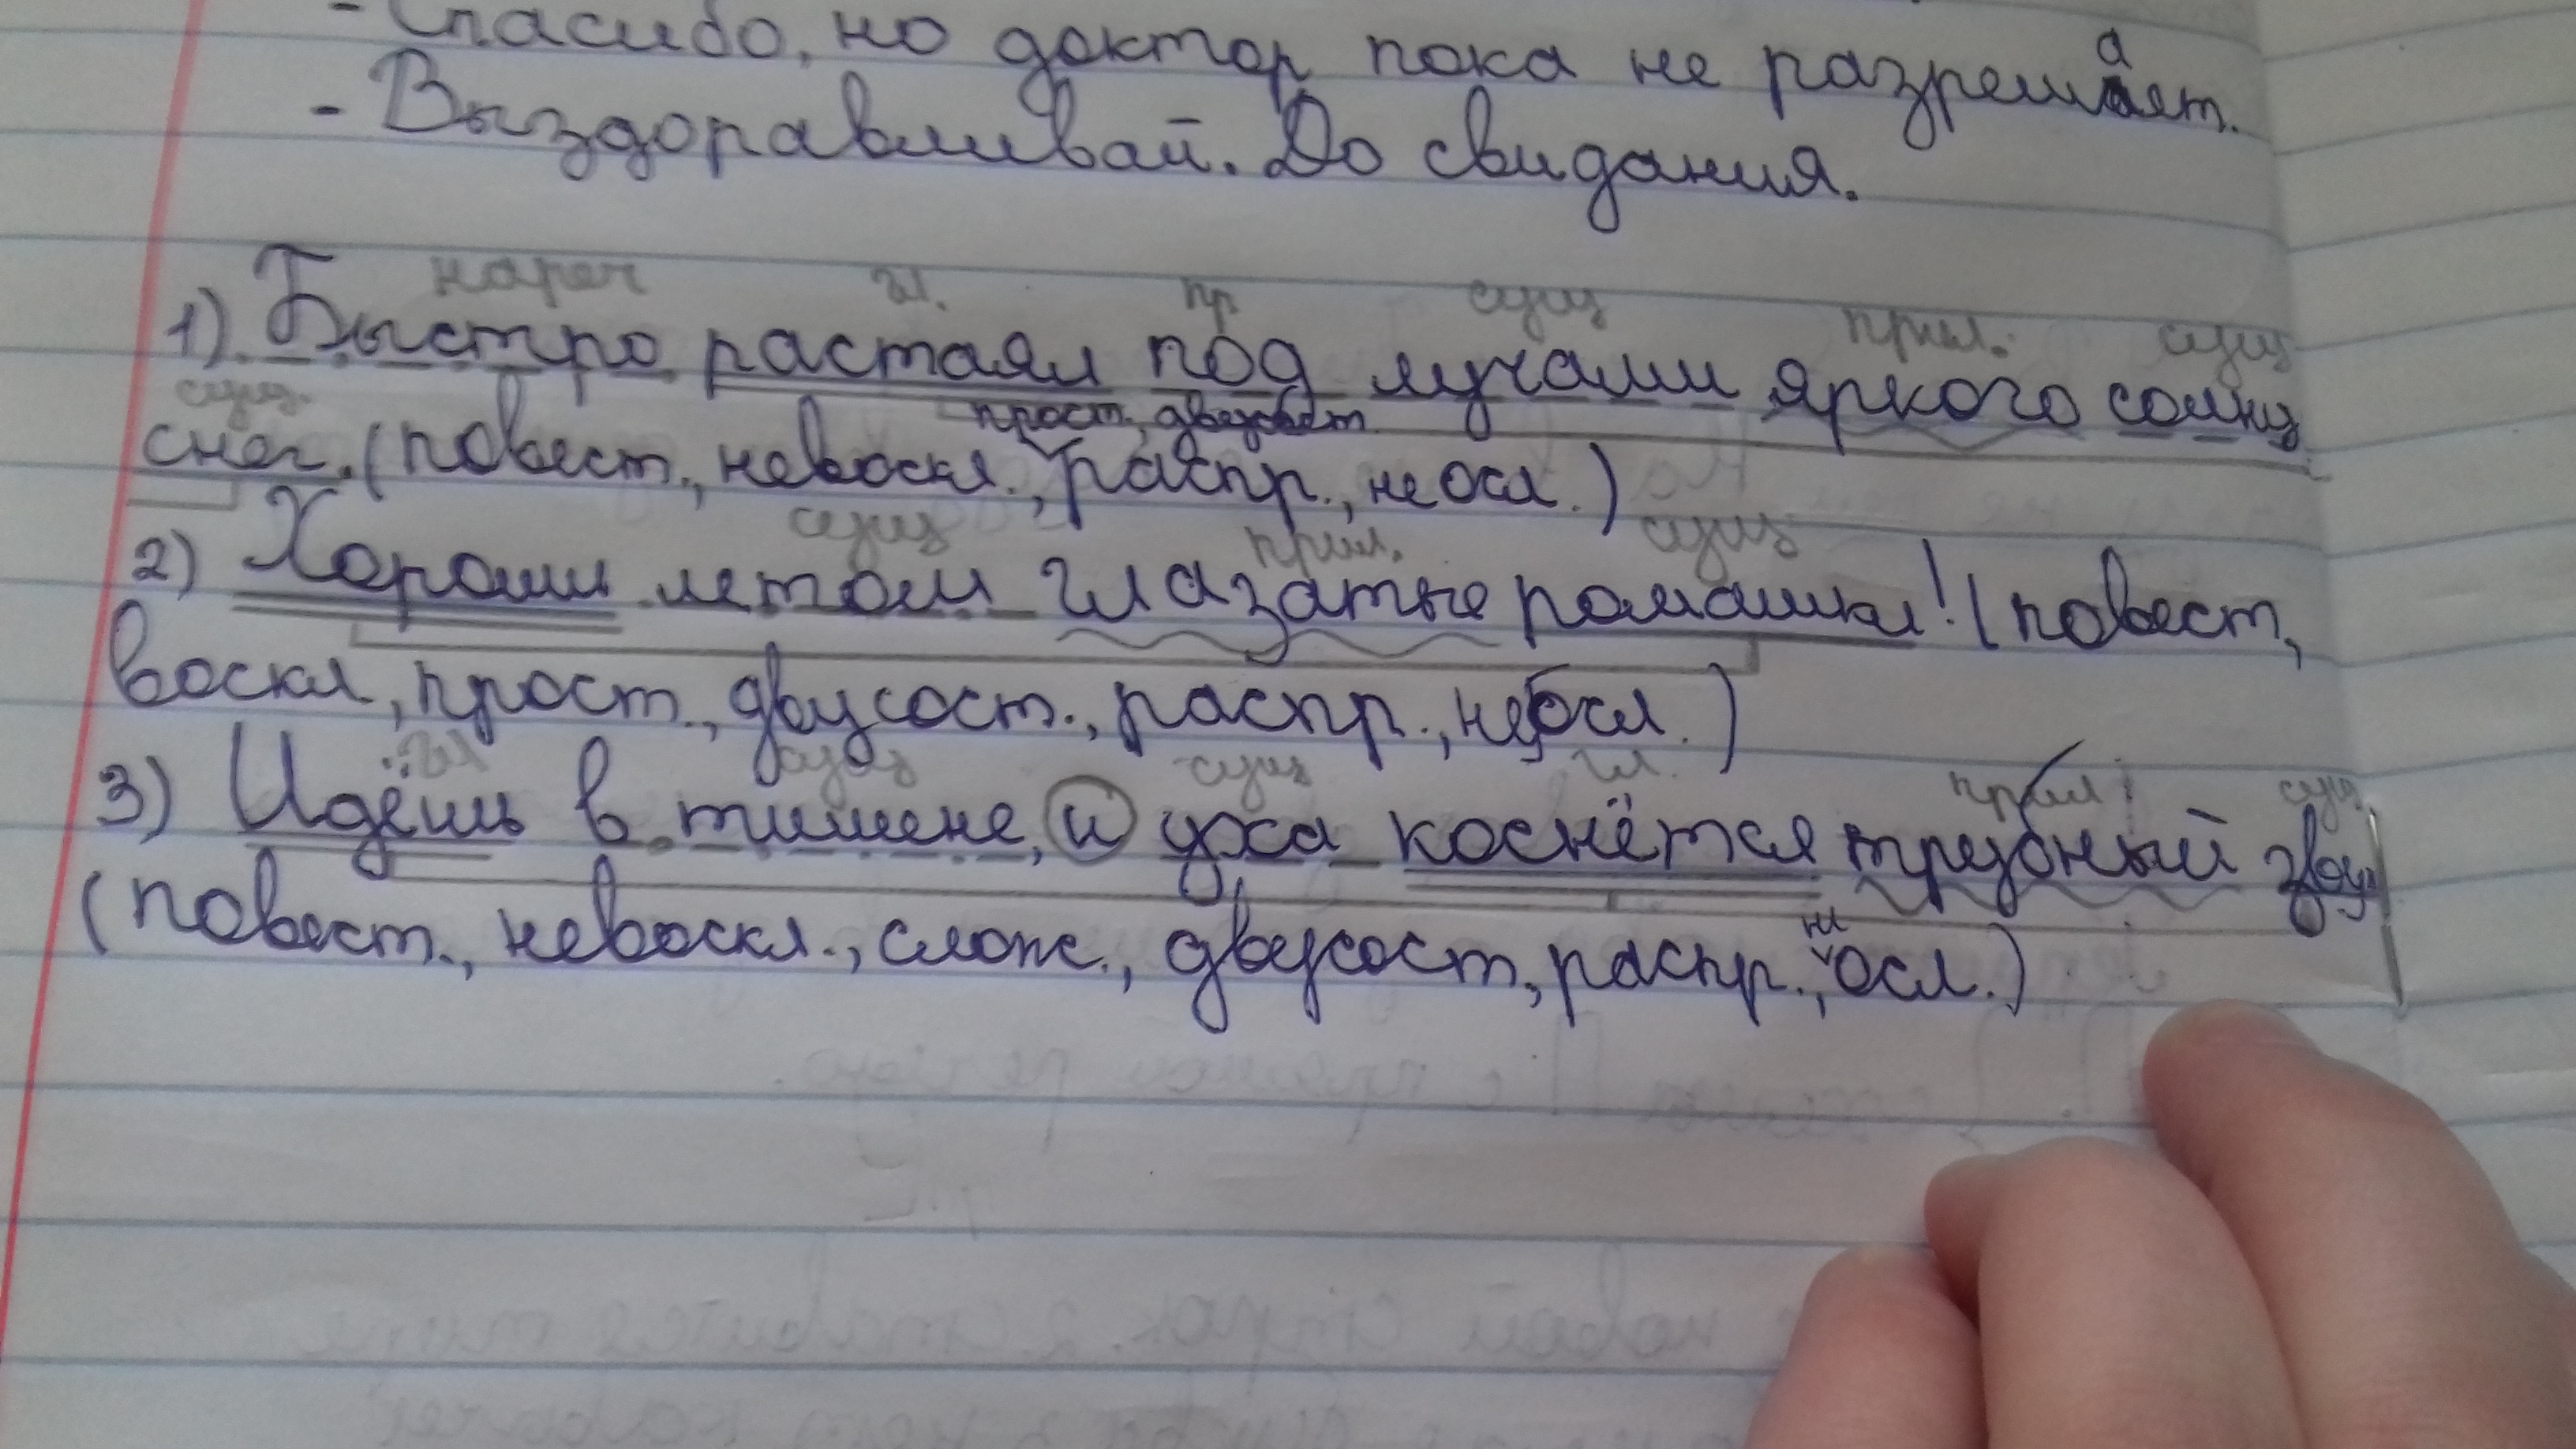 - Спасибо, но доктор пока не разрешает.
а
- Выздоравливай. До свидания.
нареч гл. пр сущ прил. сущ
1) Быстро растаял под лучами яркого солнц
сущ. прост., двусост.
снег. (повест., невоскл., распр., неосл.)
сущ прил. сущ
2) Хороши летом глазатые ромашки! (повест,
воскл, прост., двусост., распр., неосл.)
гл сущ сущ гл. прил сущ
3) Идёшь в тишине, и уха коснётся трубный звук
не
(повест., невоскл., слож., двусост, распр., осл.)